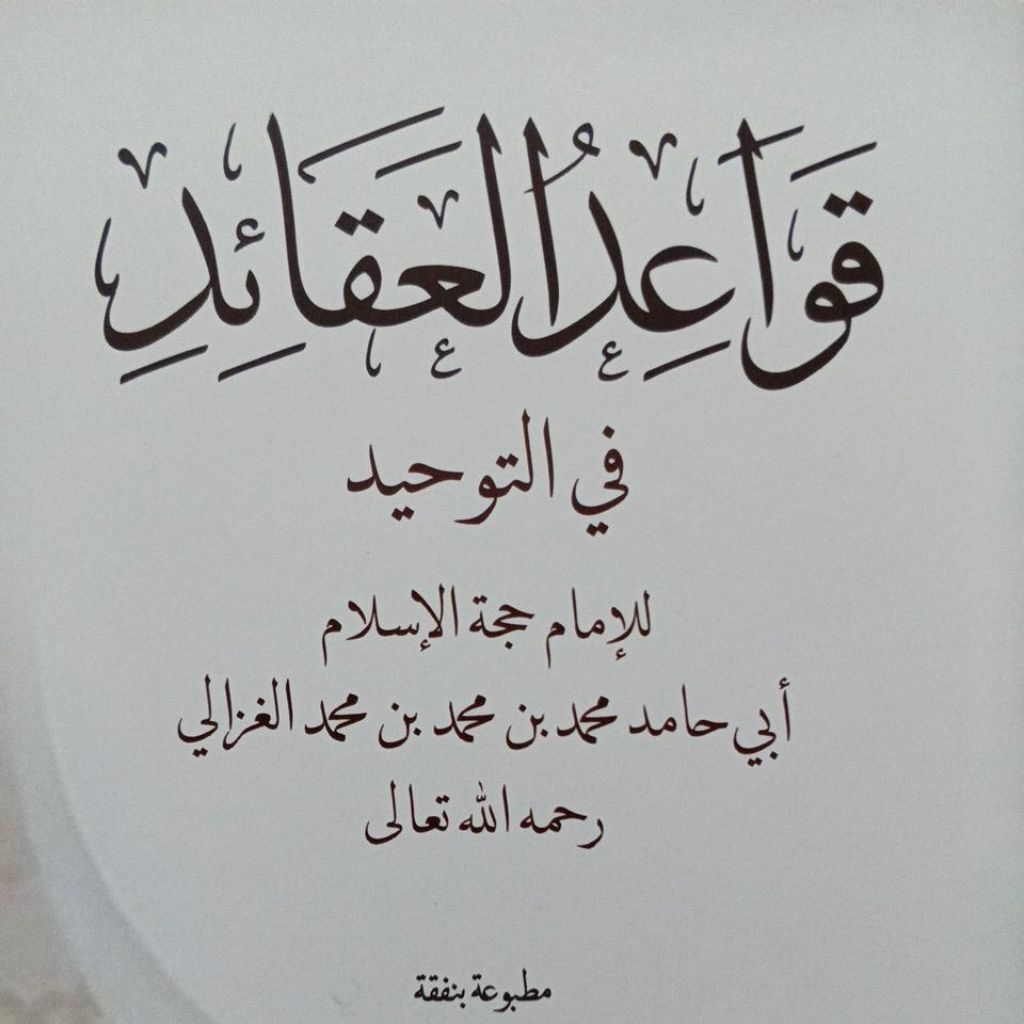 قَوَاعِدُ الْعَقَائِدِ
في التوحيد
للإمام حجة الإسلام
أبي حامد محمد بن محمد بن محمد الغزالي
رحمه الله تعالى
مطبوعة بنفقة